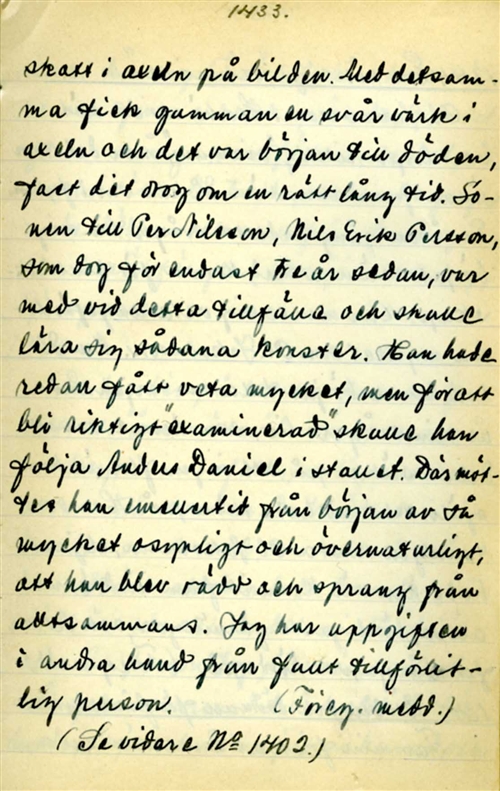 1433.
skott i axeln på bilden. Med detsam-
ma fick gumman en svår värk i
axeln och det var början till döden,
fast det drog om en rätt lång tid. So-
nen till Per Nilsson, Nils Erik Persson,
som dog för endast tre år sedan, var
med vid detta tillfälle och skulle
lära sig sådana konster. Han hade
redan fått veta mycket, men för att
bli riktigt "examinerad" skulle han
följa Anders Daniel i stallet. Där möt-
tes han emellertid från början av så
mycket osynligt och övernaturligt,
att han blev rädd och sprang från
alltsammans. Jag har uppgiften
i andra hand från fullt tillförlit-
lig person. (Föreg. medd.)
(Se vidare No 1402.)